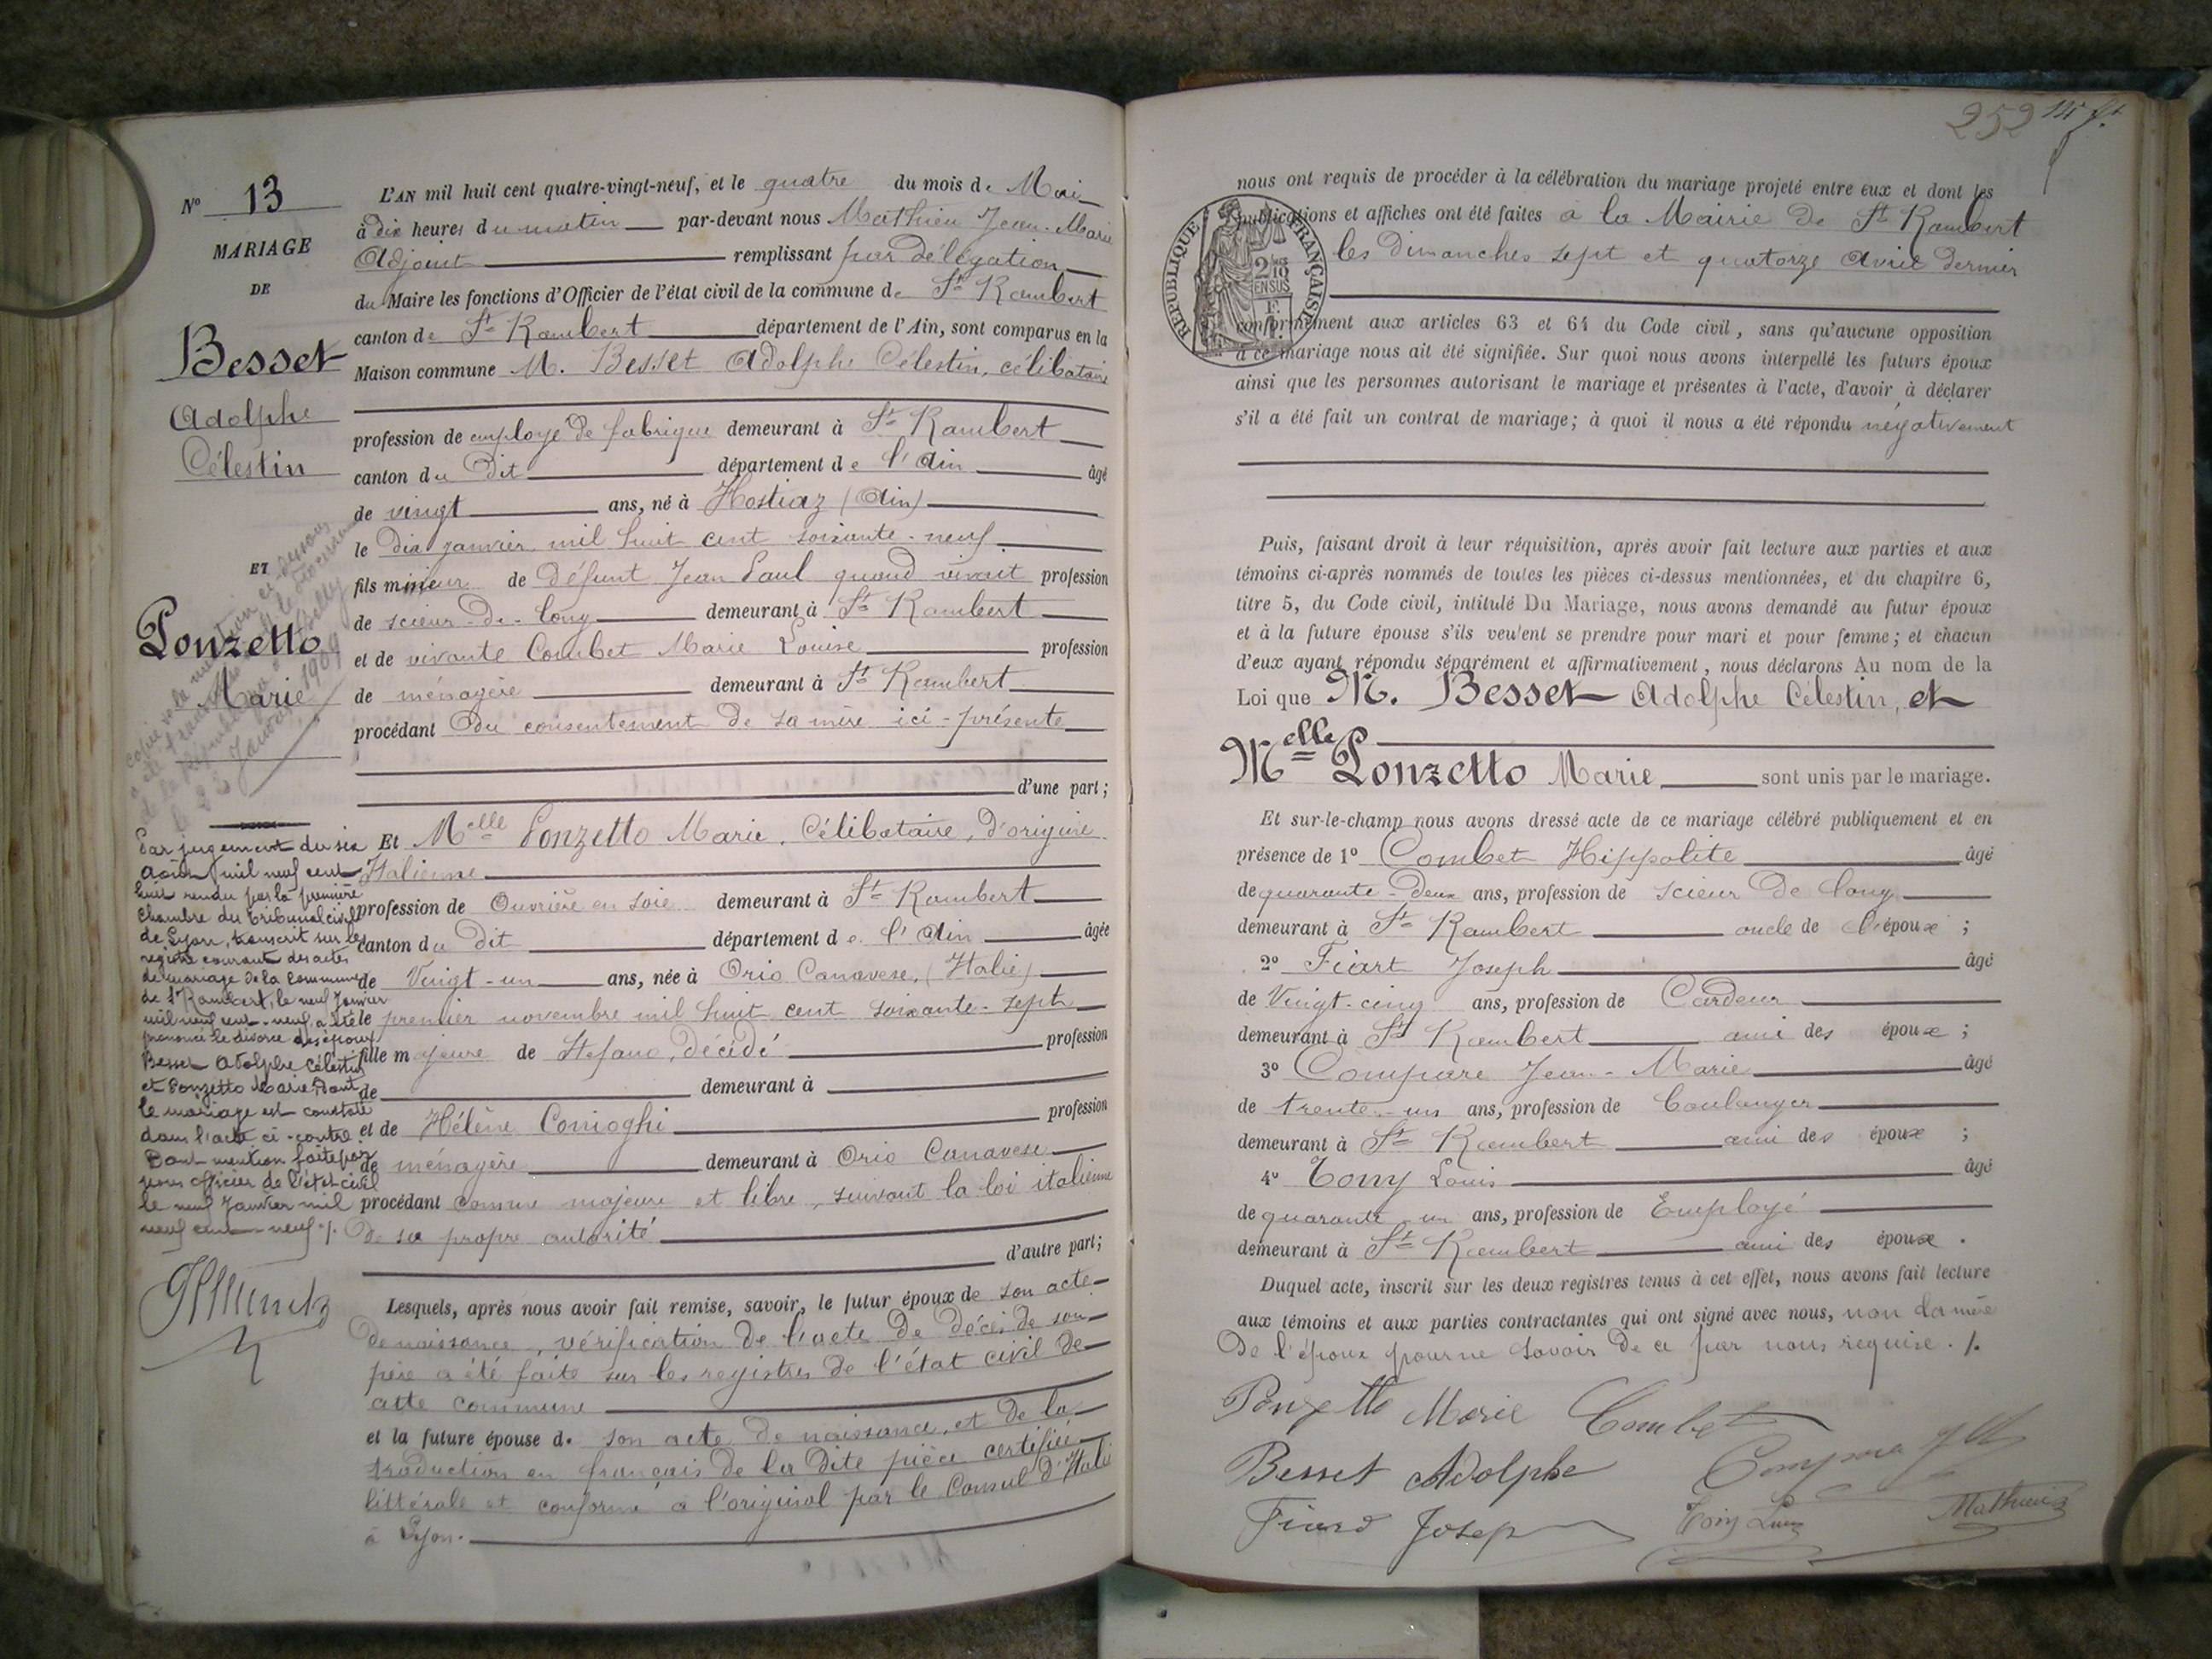 N° 13
MARIAGE
DE
Besset
Adolphe
Célestin
ET
Ponzetto
Marie
Par jugement du six
août mil neuf cent
huit rendu par la première
chambre du tribunal civil
de Lyon, transcrit sur les
registre courant des actes
de mariage de la commune
de St Rambert, le neuf Janvier
mil neuf cent neuf, a été
prononcé le divorce des époux
Besset Adolphe Célestin
et Ponzetto Marie dont
le mariage est constaté
dans l'acte ci-contre.
Dont mention faite par
nous officier de l'état civil
le neuf Janvier mil
neuf cent neuf ./.
L'AN mil huit cent quatre-vingt-neuf, et le quatre du mois de Mai
à dix heures du matin par-devant nous Mathieu Jean-Marie
Adjoint remplissant par délégation
du Maire les fonctions d'Officier de l'état civil de la commune de St Rambert
canton de St Rambert département de l'Ain, sont comparus en la
Maison commune M. Besset Adolphe Célestin, célibataire
profession de employé de fabrique demeurant à St Rambert
canton du dit département de l'Ain âgé
de vingt ans, né à Hostiaz (Ain)
le dix janvier mil huit cent soixante-neuf
fils mineur de défunt Jean Paul quand vivait profession
de scieur-de-long demeurant à St Rambert
et de vivante Combet Marie Louise profession
de ménagère demeurant à St Rambert
procédant du consentement de sa mère ici-présente
d'une part;
Et Melle Ponzetto Marie, Célibataire, d'origine
Italienne
profession de Ouvrière en soie demeurant à St Rambert
canton du dit département de l'Ain âgée
de Vingt-un ans, née à Orio Canavese, (Italie)
le premier novembre mil huit cent soixante-sept
fille majeure de Stefano, décédé profession
de demeurant à
et de Hélène Conioghi profession
de ménagère demeurant à Orio Canavese
procédant comme majeure et libre, suivant la loi italienne
de sa propre autorité
d'autre part;
Lesquels, après nous avoir fait remise, savoir, le futur époux de son acte
de naissance, vérification de l'acte de décès de son
père a été faite sur les registres de l'état civil de
cette commune
et la future épouse de son acte de naissance, et de la
traduction en français de la dite pièce certifiée
littérale et conforme à l'original par le Consul d'Italie
à Lyon.
252
nous ont requis de procéder à la célébration du mariage projeté entre eux et dont les
publications et affiches ont été faites à la Mairie de St Rambert
les dimanches sept et quatorze avril dernier
RÉPUBLIQUE FRANÇAISE
conformément aux articles 63 et 64 du Code civil, sans qu'aucune opposition
à ce mariage nous ait été signifiée. Sur quoi nous avons interpellé les futurs époux
ainsi que les personnes autorisant le mariage et présentes à l'acte, d'avoir à déclarer
s'il a été fait un contrat de mariage; à quoi il nous a été répondu négativement
Puis, faisant droit à leur réquisition, après avoir fait lecture aux parties et aux
témoins ci-après nommés de toutes les pièces ci-dessus mentionnées, et du chapitre 6,
titre 5, du Code civil, intitulé Du Mariage, nous avons demandé au futur époux
et à la future épouse s'ils veulent se prendre pour mari et pour femme; et chacun
d'eux ayant répondu séparément et affirmativement, nous déclarons Au nom de la
Loi que M. Besset Adolphe Célestin, et
Melle Ponzetto Marie sont unis par le mariage.
Et sur-le-champ nous avons dressé acte de ce mariage célébré publiquement et en
présence de 1° Combet Hippolite âgé
de quarante-deux ans, profession de scieur de long
demeurant à St Rambert oncle de l'époux ;
2° Fiart Joseph âgé
de Vingt-cinq ans, profession de Cardeur
demeurant à St Rambert ami des époux ;
3° Compare Jean-Marie âgé
de trente-un ans, profession de boulanger
demeurant à St Rambert ami des époux ;
4° Tony Louis âgé
de quarante-un ans, profession de Employé
demeurant à St Rambert ami des époux .
Duquel acte, inscrit sur les deux registres tenus à cet effet, nous avons fait lecture
aux témoins et aux parties contractantes qui ont signé avec nous, non la mère
de l'époux pour ne savoir de ce par nous requise. /.
Ponzetto Marie Combet
Besset Adolphe
Fiard Josep
Mathieu